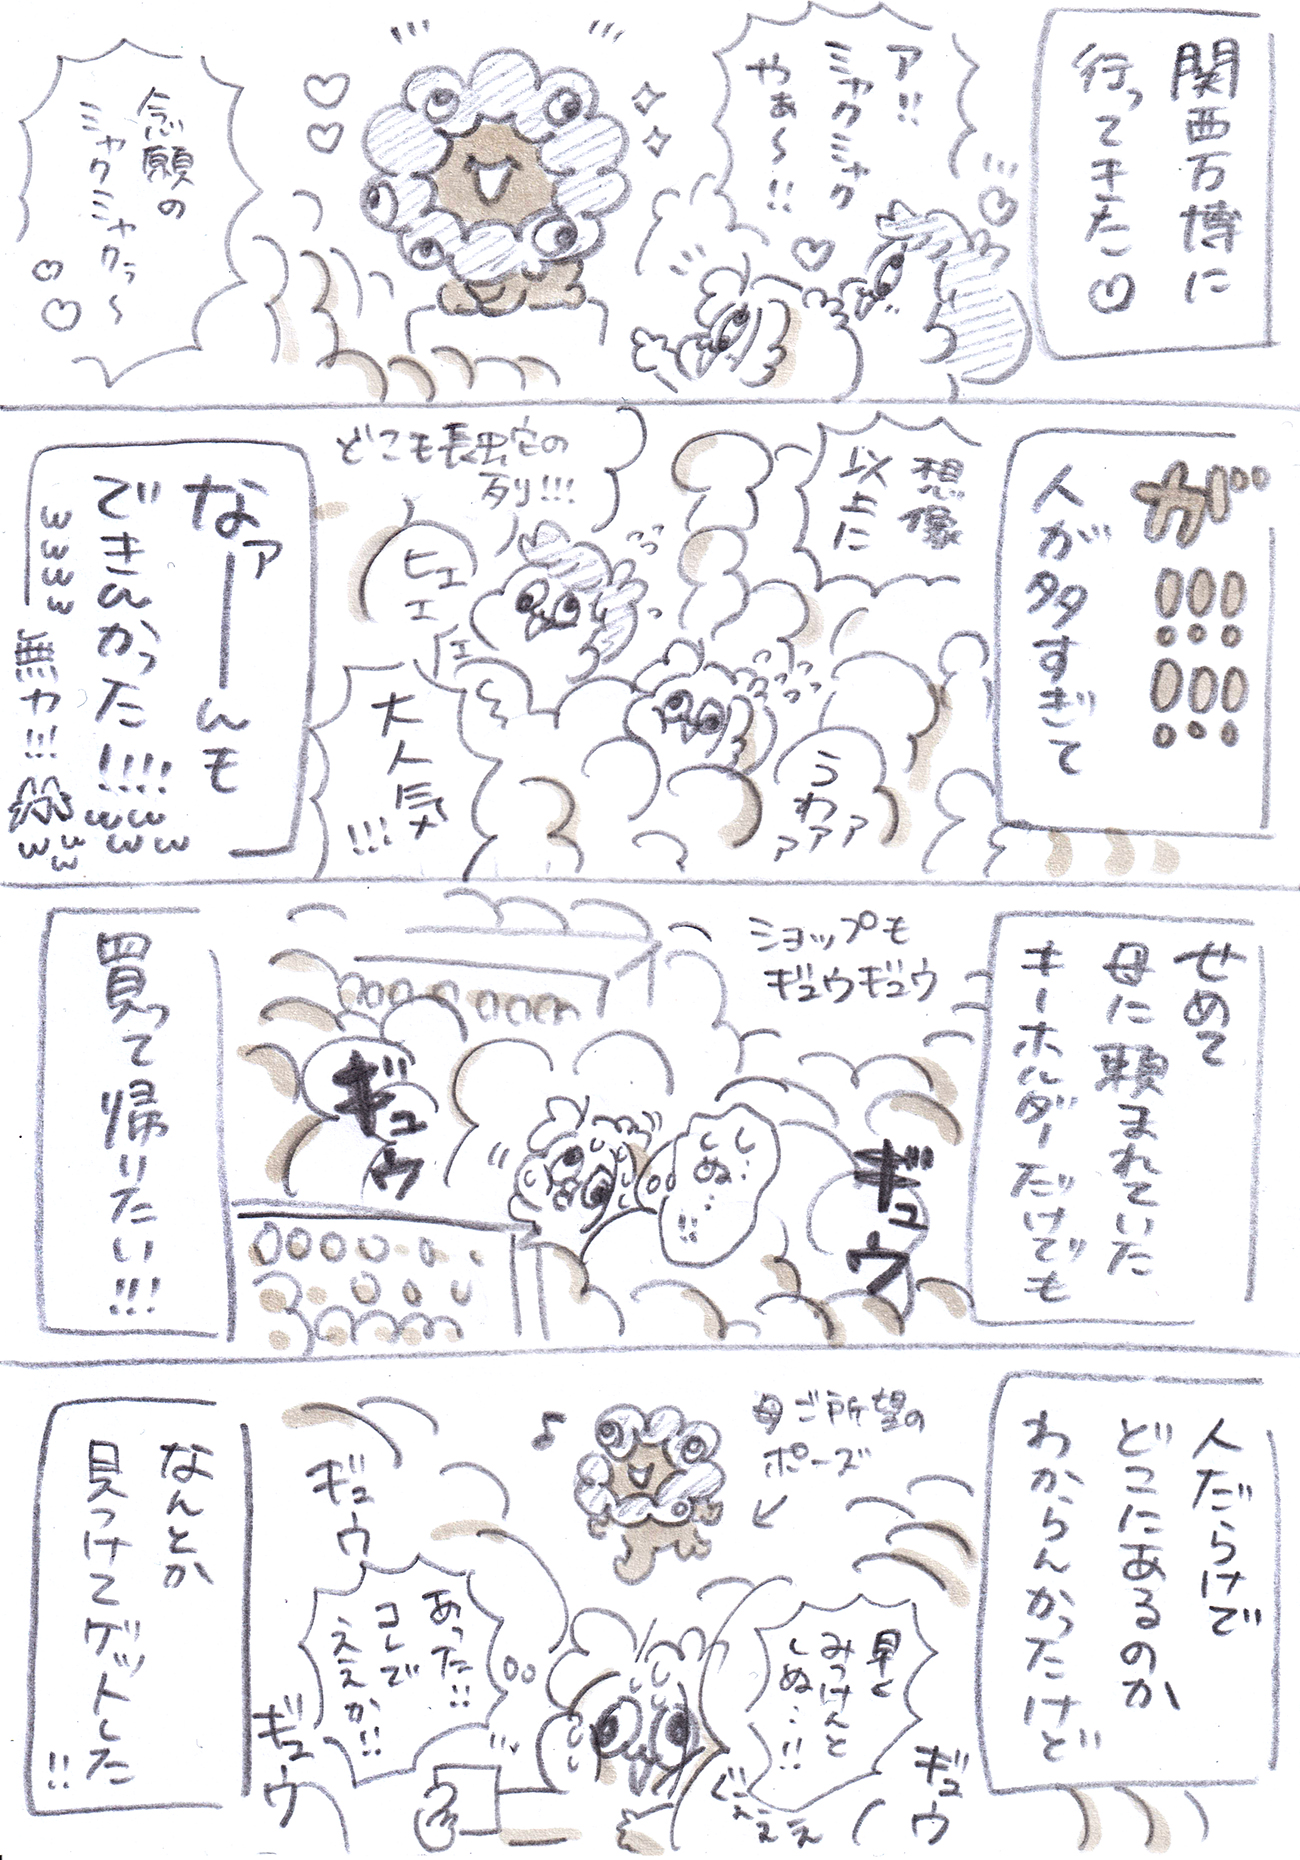 関西万博に
行ってきた♡
ア!!
ミャクミャク
やぁ〜!!
念願の
ミャクミャクぅ〜
が!!!!!!
人が多すぎて
想像
以上に
どこも長蛇の
列!!!
ヒェェェ
うわァァァ
大人気
!!!
なァーーんも
できんかった!!!!wwww
wwww無力!!!
www
せめて
母に頼まれていた
キーホルダーだけでも
ショップも
ギュウギュウ
ギュウ
しぬ…!!
ギュウ
買って帰りたい!!!
人だらけで
どこにあるのか
わからんかったけど
母ご所望の
ポーズ
早く
みつけんと
しぬ…!!
ギュウ
ぐぇぇぇ
ギュウ
あった!!
コレで
ええか!!
ギュウ
なんとか
見つけてゲットした
!!